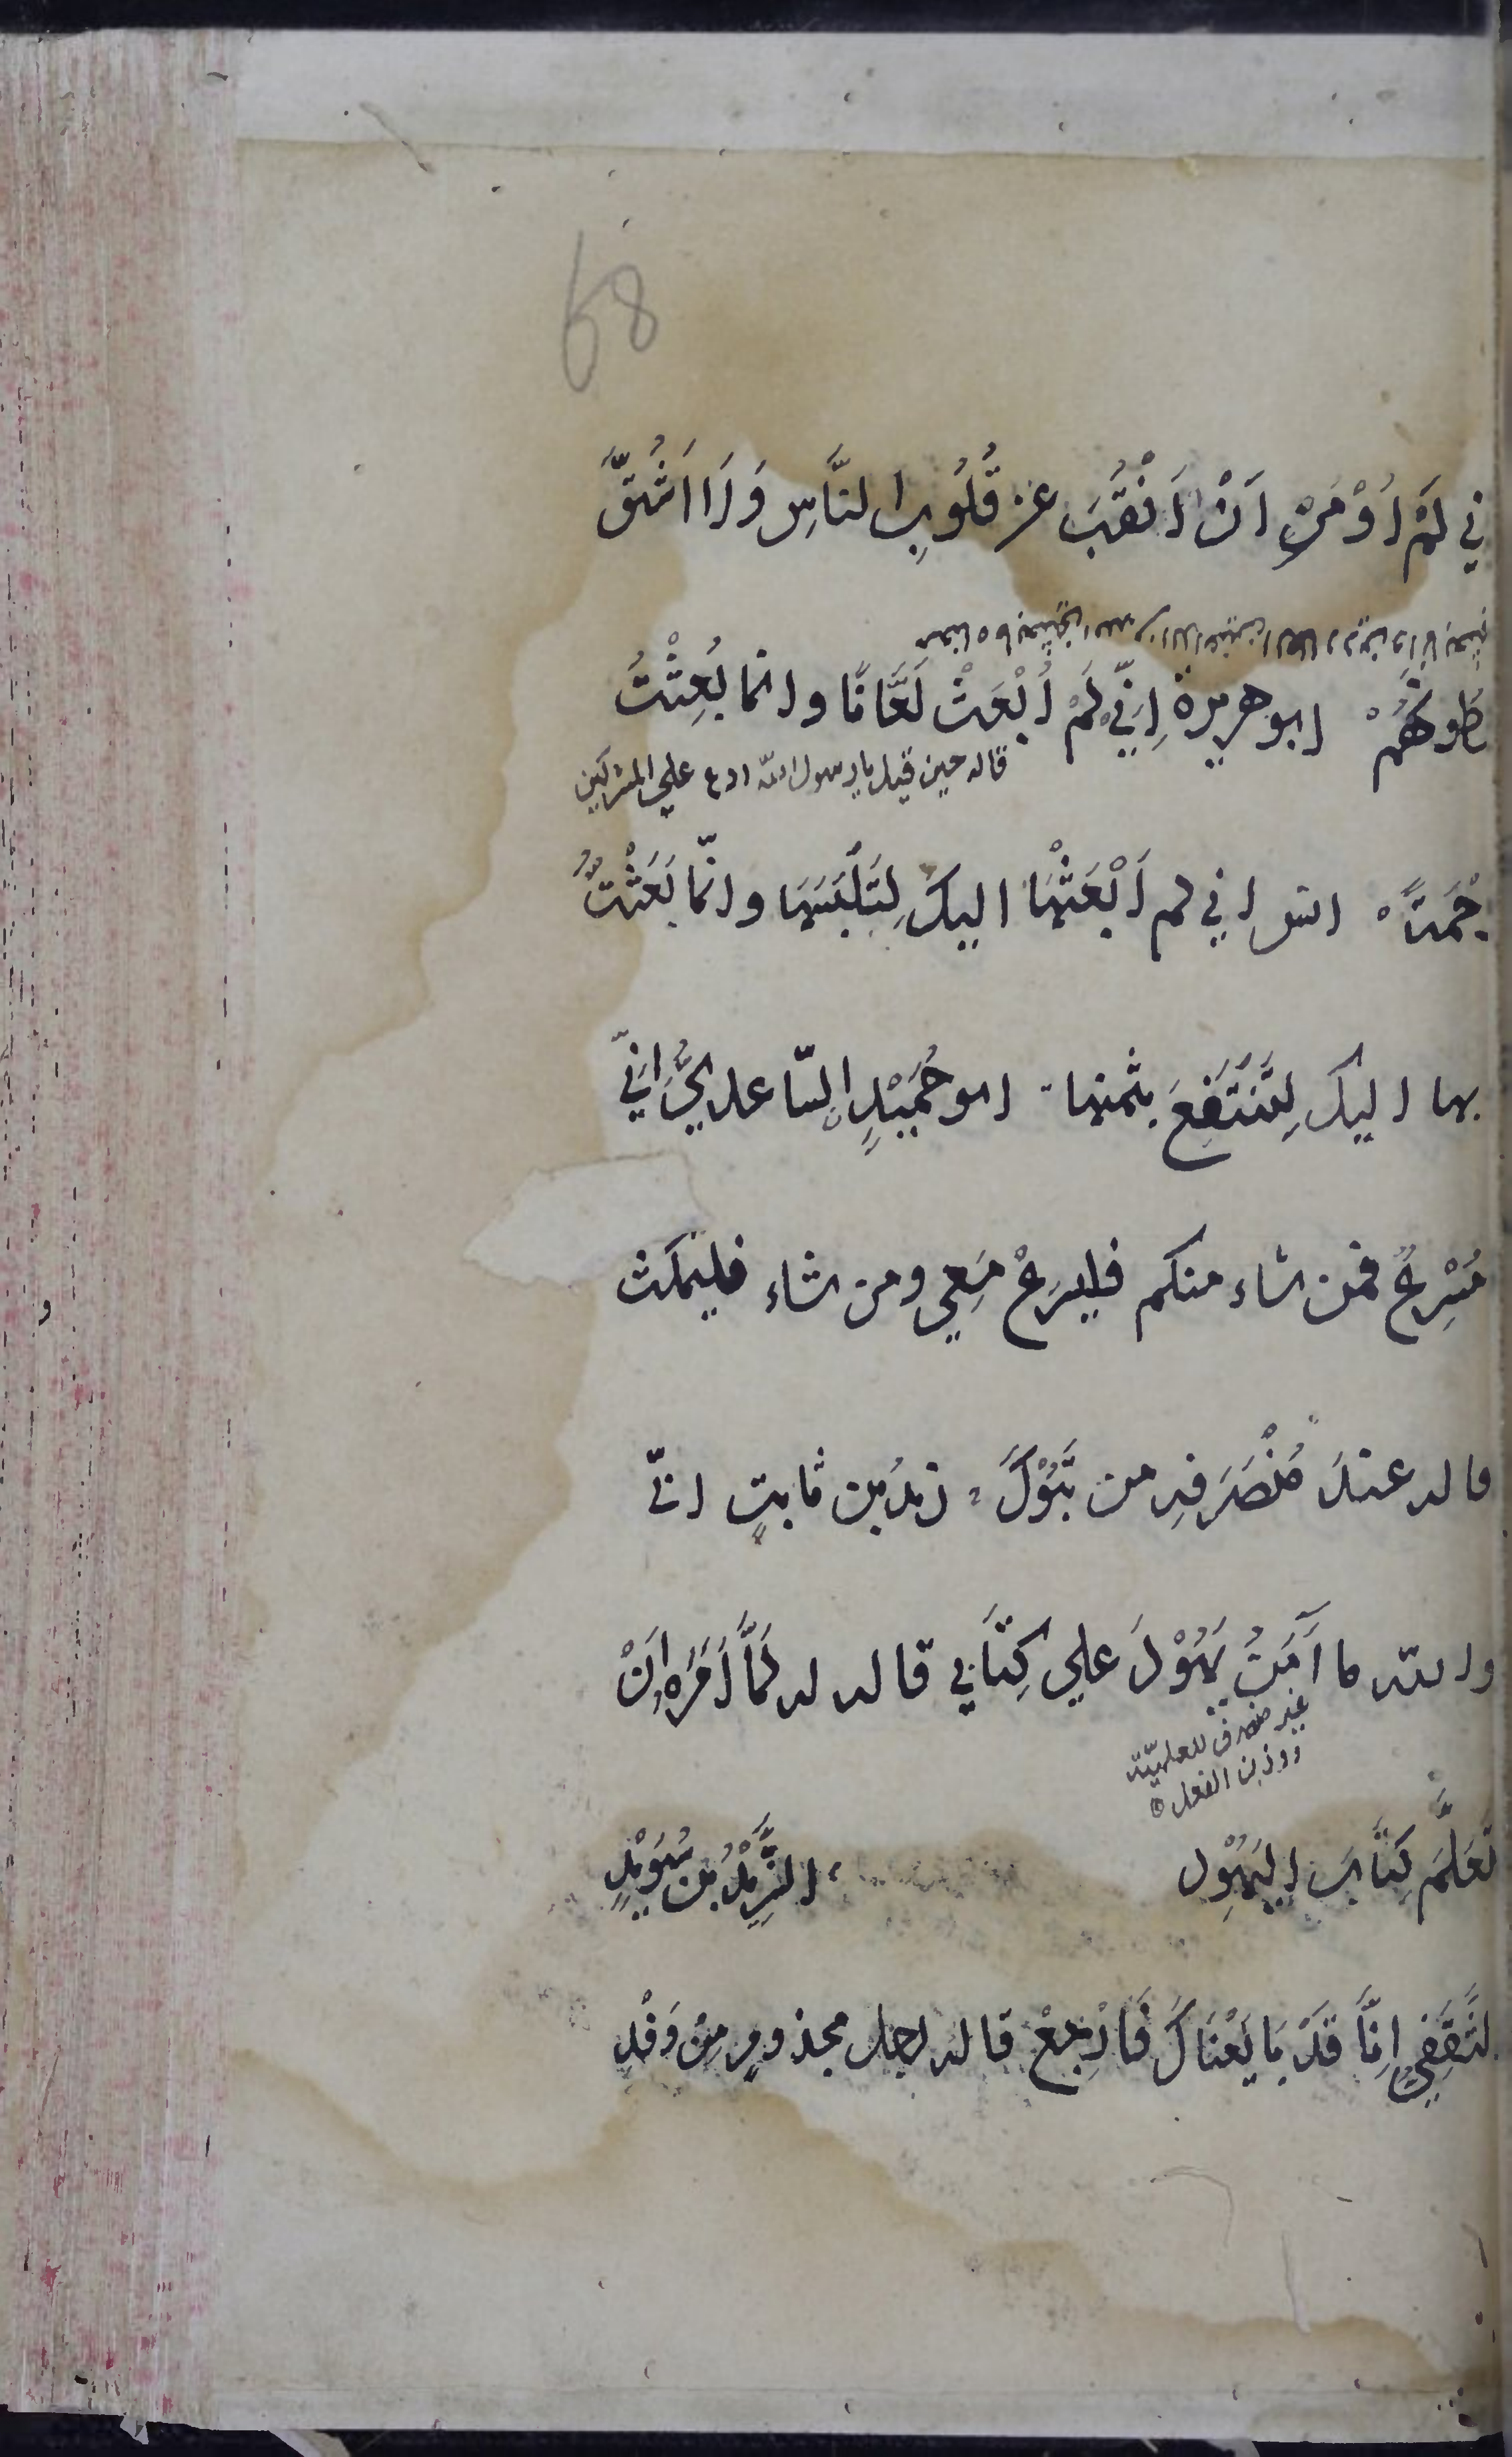 68
ني لَمْ اُوْمَرْ اَنْ اَنْقُبَ عن قُلُوبِ النَّاسِ وَلَا اَشُقَّ
طُونَهُمْ ابو هريرة اِنِّي لَمْ اُبْعَثْ لَعَّانًا وانما بُعِثْتُ
قاله حين قيل يا رسول الله ادع علي المشركين
حْمَةً انس اني لم اَبْعَثْهَا اليك لِتَلْبَسَهَا وانّما بَعَثْتُ
بها اليك لِتَنْتَفِعَ بثمنها ابو حُمَيْدٍ السّاعديُّ اِنِّي
مُسْرِعٌ فمن شاء منكم فليسرعْ مَعِي ومن شاء فليمكث
قاله عندَ مُنْصَرَفِهِ من تَبُوْكَ زيدُ بن ثابتٍ انّي
والله ما آمَنُ يَهُوْدَ علي كِتَابِي قاله له لَمَّا اَمَرَهُ اَنْ
غير منصرف للعلميّة
ووزن الفعل
تَعَلَّمَ كِتَابَ اليَهُوْدِ الشَّرِيْدُ بن سُوَيْدٍ
لثَّقَفِيُّ اِنَّا قَدْ بَايَعْنَاكَ فَارْجِعْ قاله لرجل مجذومٍ مِنْ وَفْدِ